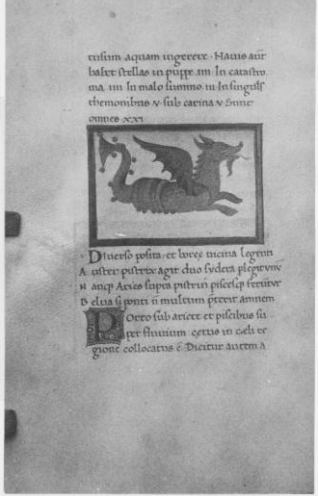 rursum aquam ingerere. Hauis aūt
habet stellas in puppe .iiii. In catastro
ma .iiii. In malo summo .iii. In singulis
themonibus .v. sub carina .v. Sunt
omnes .xxi.
Diverso posita et boreę uicina legenti
Auster pistrix agit duo sydera plegit unū
Nanq̄ Aries supra pistrin piscesq̄ feruntur
Belua si ponti ñ multum pterit amnem
Porro sub ariete et piscibus su
per fluuium cętus in cęli re
gione collocatus ē. Dicitur autem a